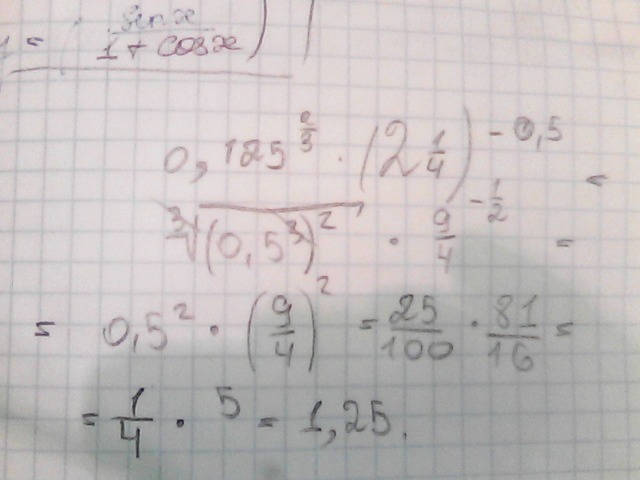 = sin x / 1 + cos x )
0,125^(2/3) · (2 1/4)^(-0,5) =
∛(0,5³)² · 9/4^(-1/2) =
= 0,5² · (9/4)² = 25/100 · 81/16 =
= 1/4 · 5 = 1,25.